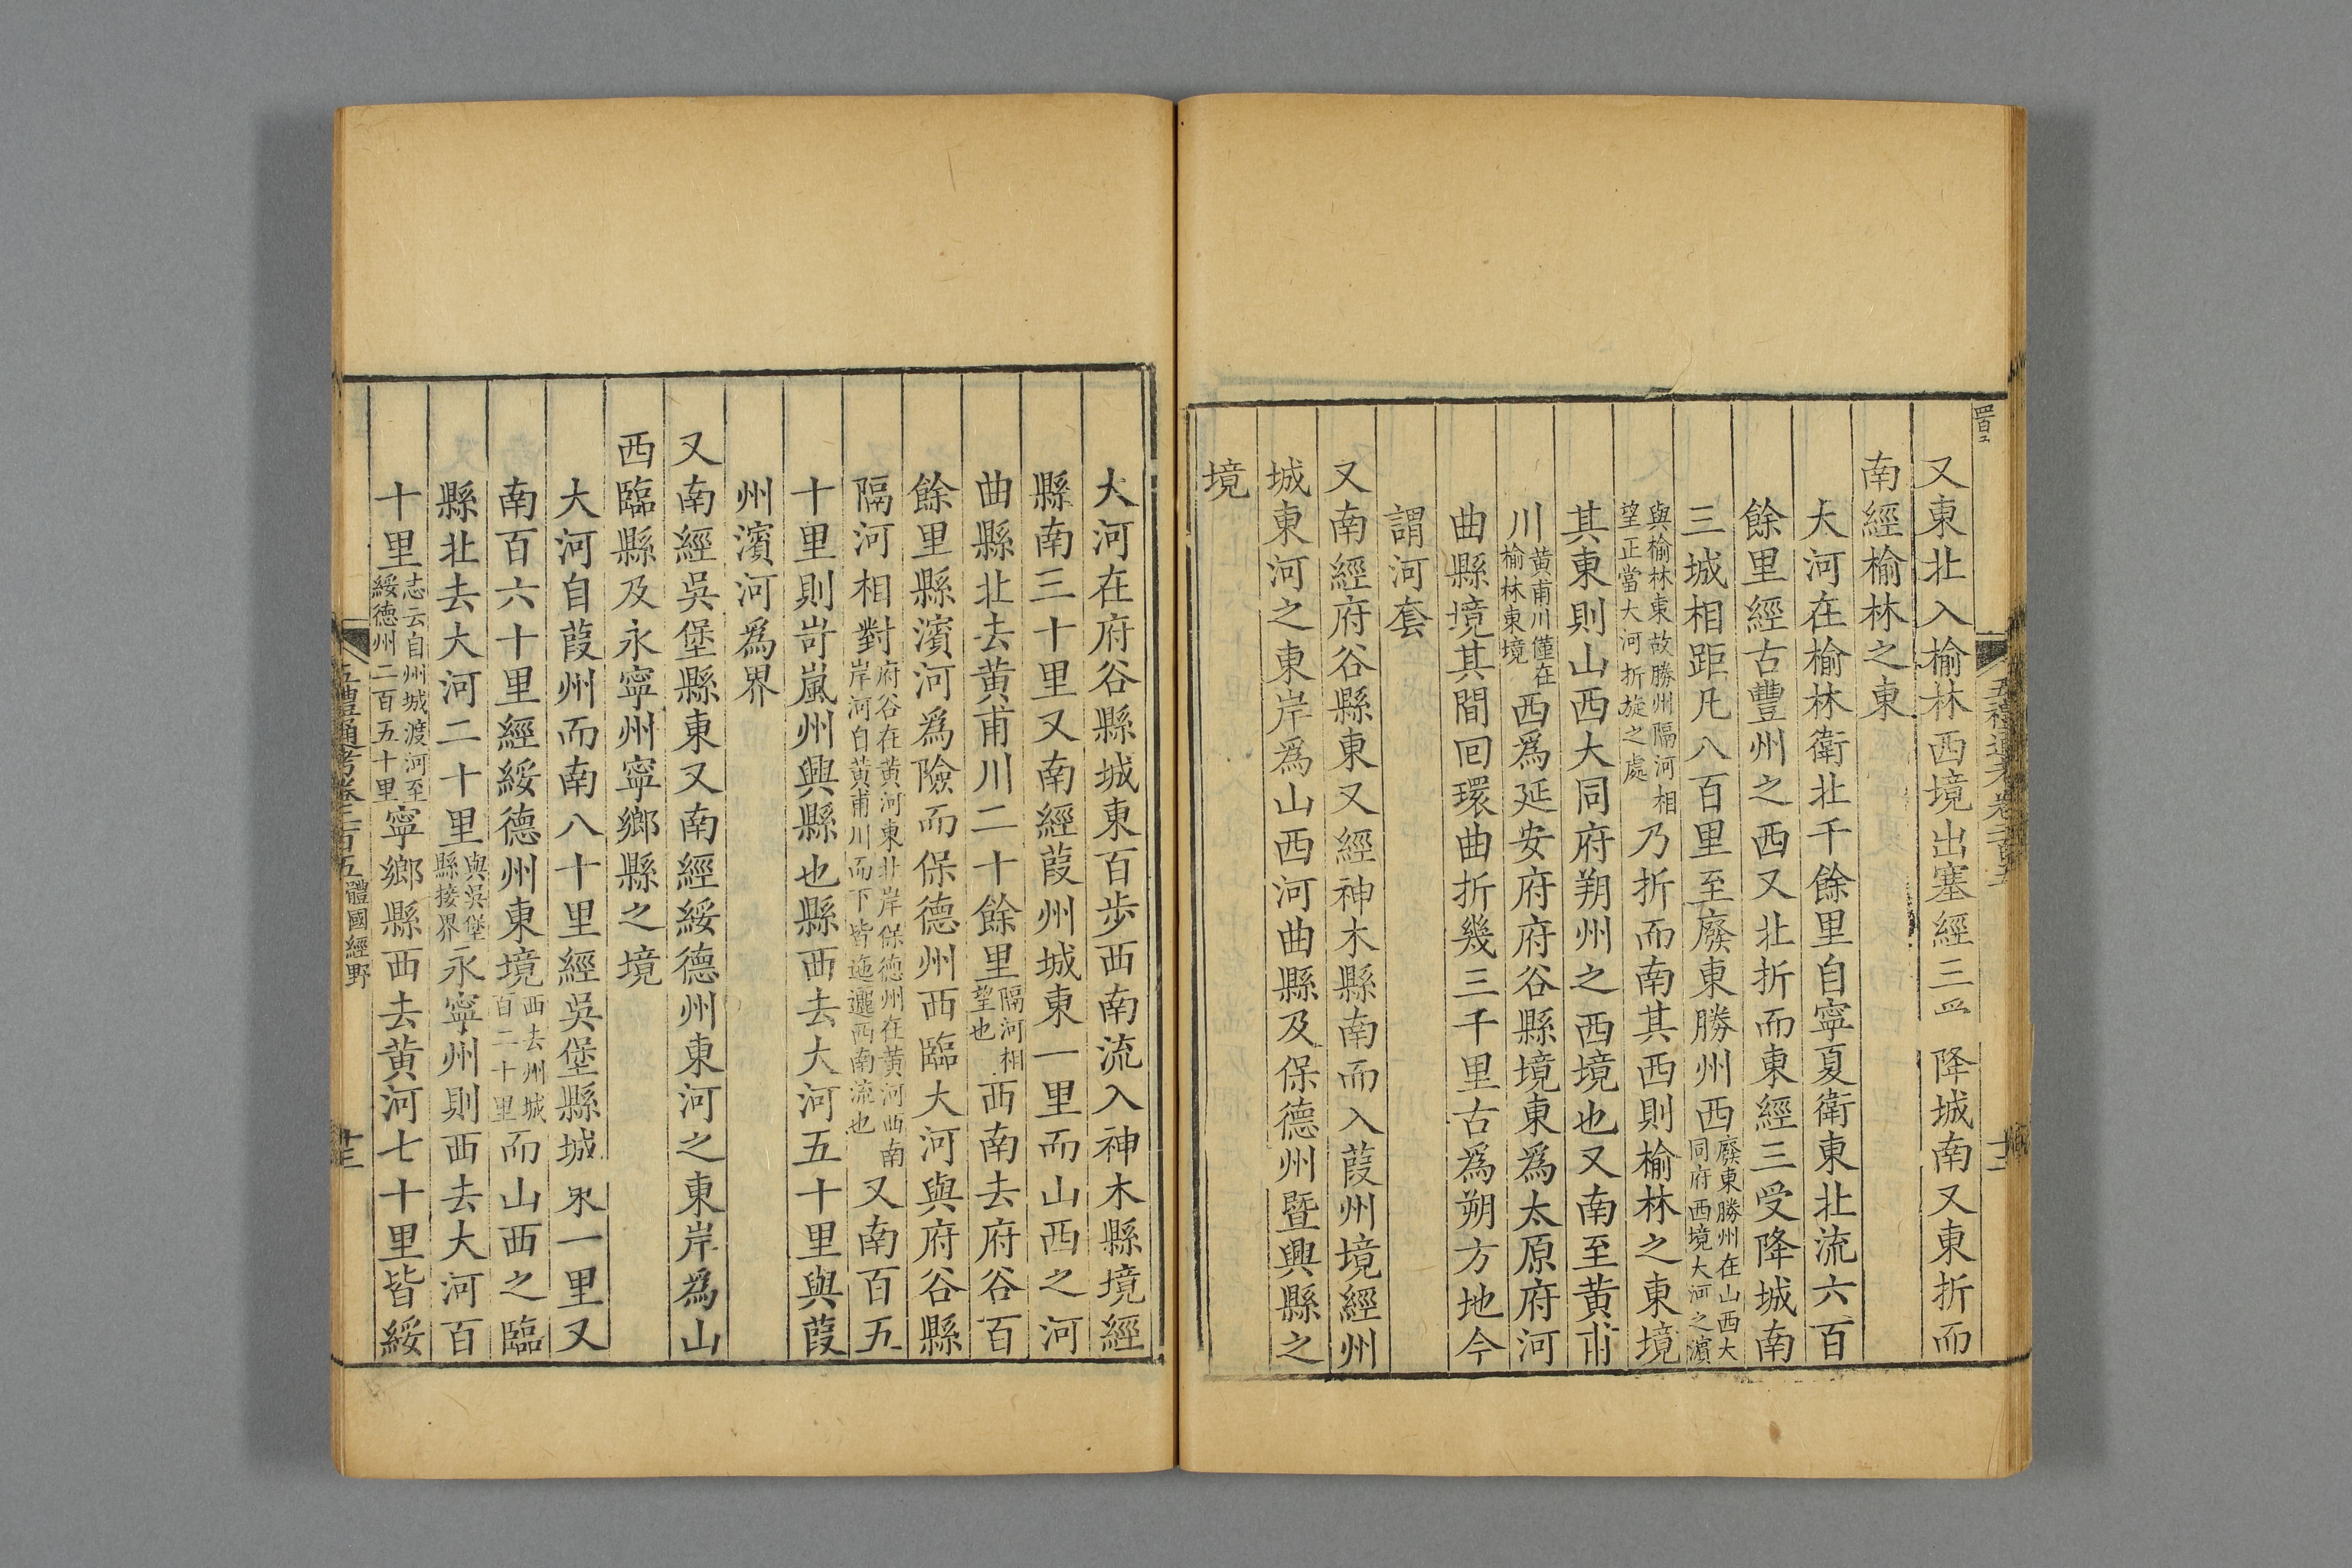 又東北入榆林西境出塞經三降城南又東折而
南經榆林之東
大河在榆林衛北千餘里自寧夏衛東北流六百
餘里經古豐州之西又北折而東經三受降城南
三城相距凡八百里至廢東勝州西廢東勝州在山西大同府西境大河之濱
與榆林東故勝州隔河相望正當大河折旋之處乃折而南其西則榆林之東境
其東則山西大同府朔州之西境也又南至黄甫
川黄甫川僅在榆林東境西爲延安府府谷縣境東爲太原府河
曲縣境其間回環曲折幾三千里古爲朔方地今
謂河套
又南經府谷縣東又經神木縣南而入葭州境經州
城東河之東岸爲山西河曲縣及保德州暨興縣之
境
大河在府谷縣城東百步西南流入神木縣境經
縣南三十里又南經葭州城東一里而山西之河
曲縣北去黄甫川二十餘里隔河相望也西南去府谷百
餘里縣濱河爲險而保德州西臨大河與府谷縣
隔河相對府谷在黄河東北岸保德州在黄河西南岸河自黄甫川而下皆迤邐西南流也又南百五
十里則岢嵐州興縣也縣西去大河五十里與葭
州濱河爲界
又南經吳堡縣東又南經綏德州東河之東岸爲山
西臨縣及永寧州寧鄉縣之境
大河自葭州而南八十里經吳堡縣城東一里又
南百六十里經綏德州東境西去州城百二十里而山西之臨
縣北去大河二十里與吳堡縣接界永寧州則西去大河百
十里志云自州城渡河至綏德州二百五十里寧鄉縣西去黄河七十里皆綏
五禮通考卷二百五 體國經野
十三